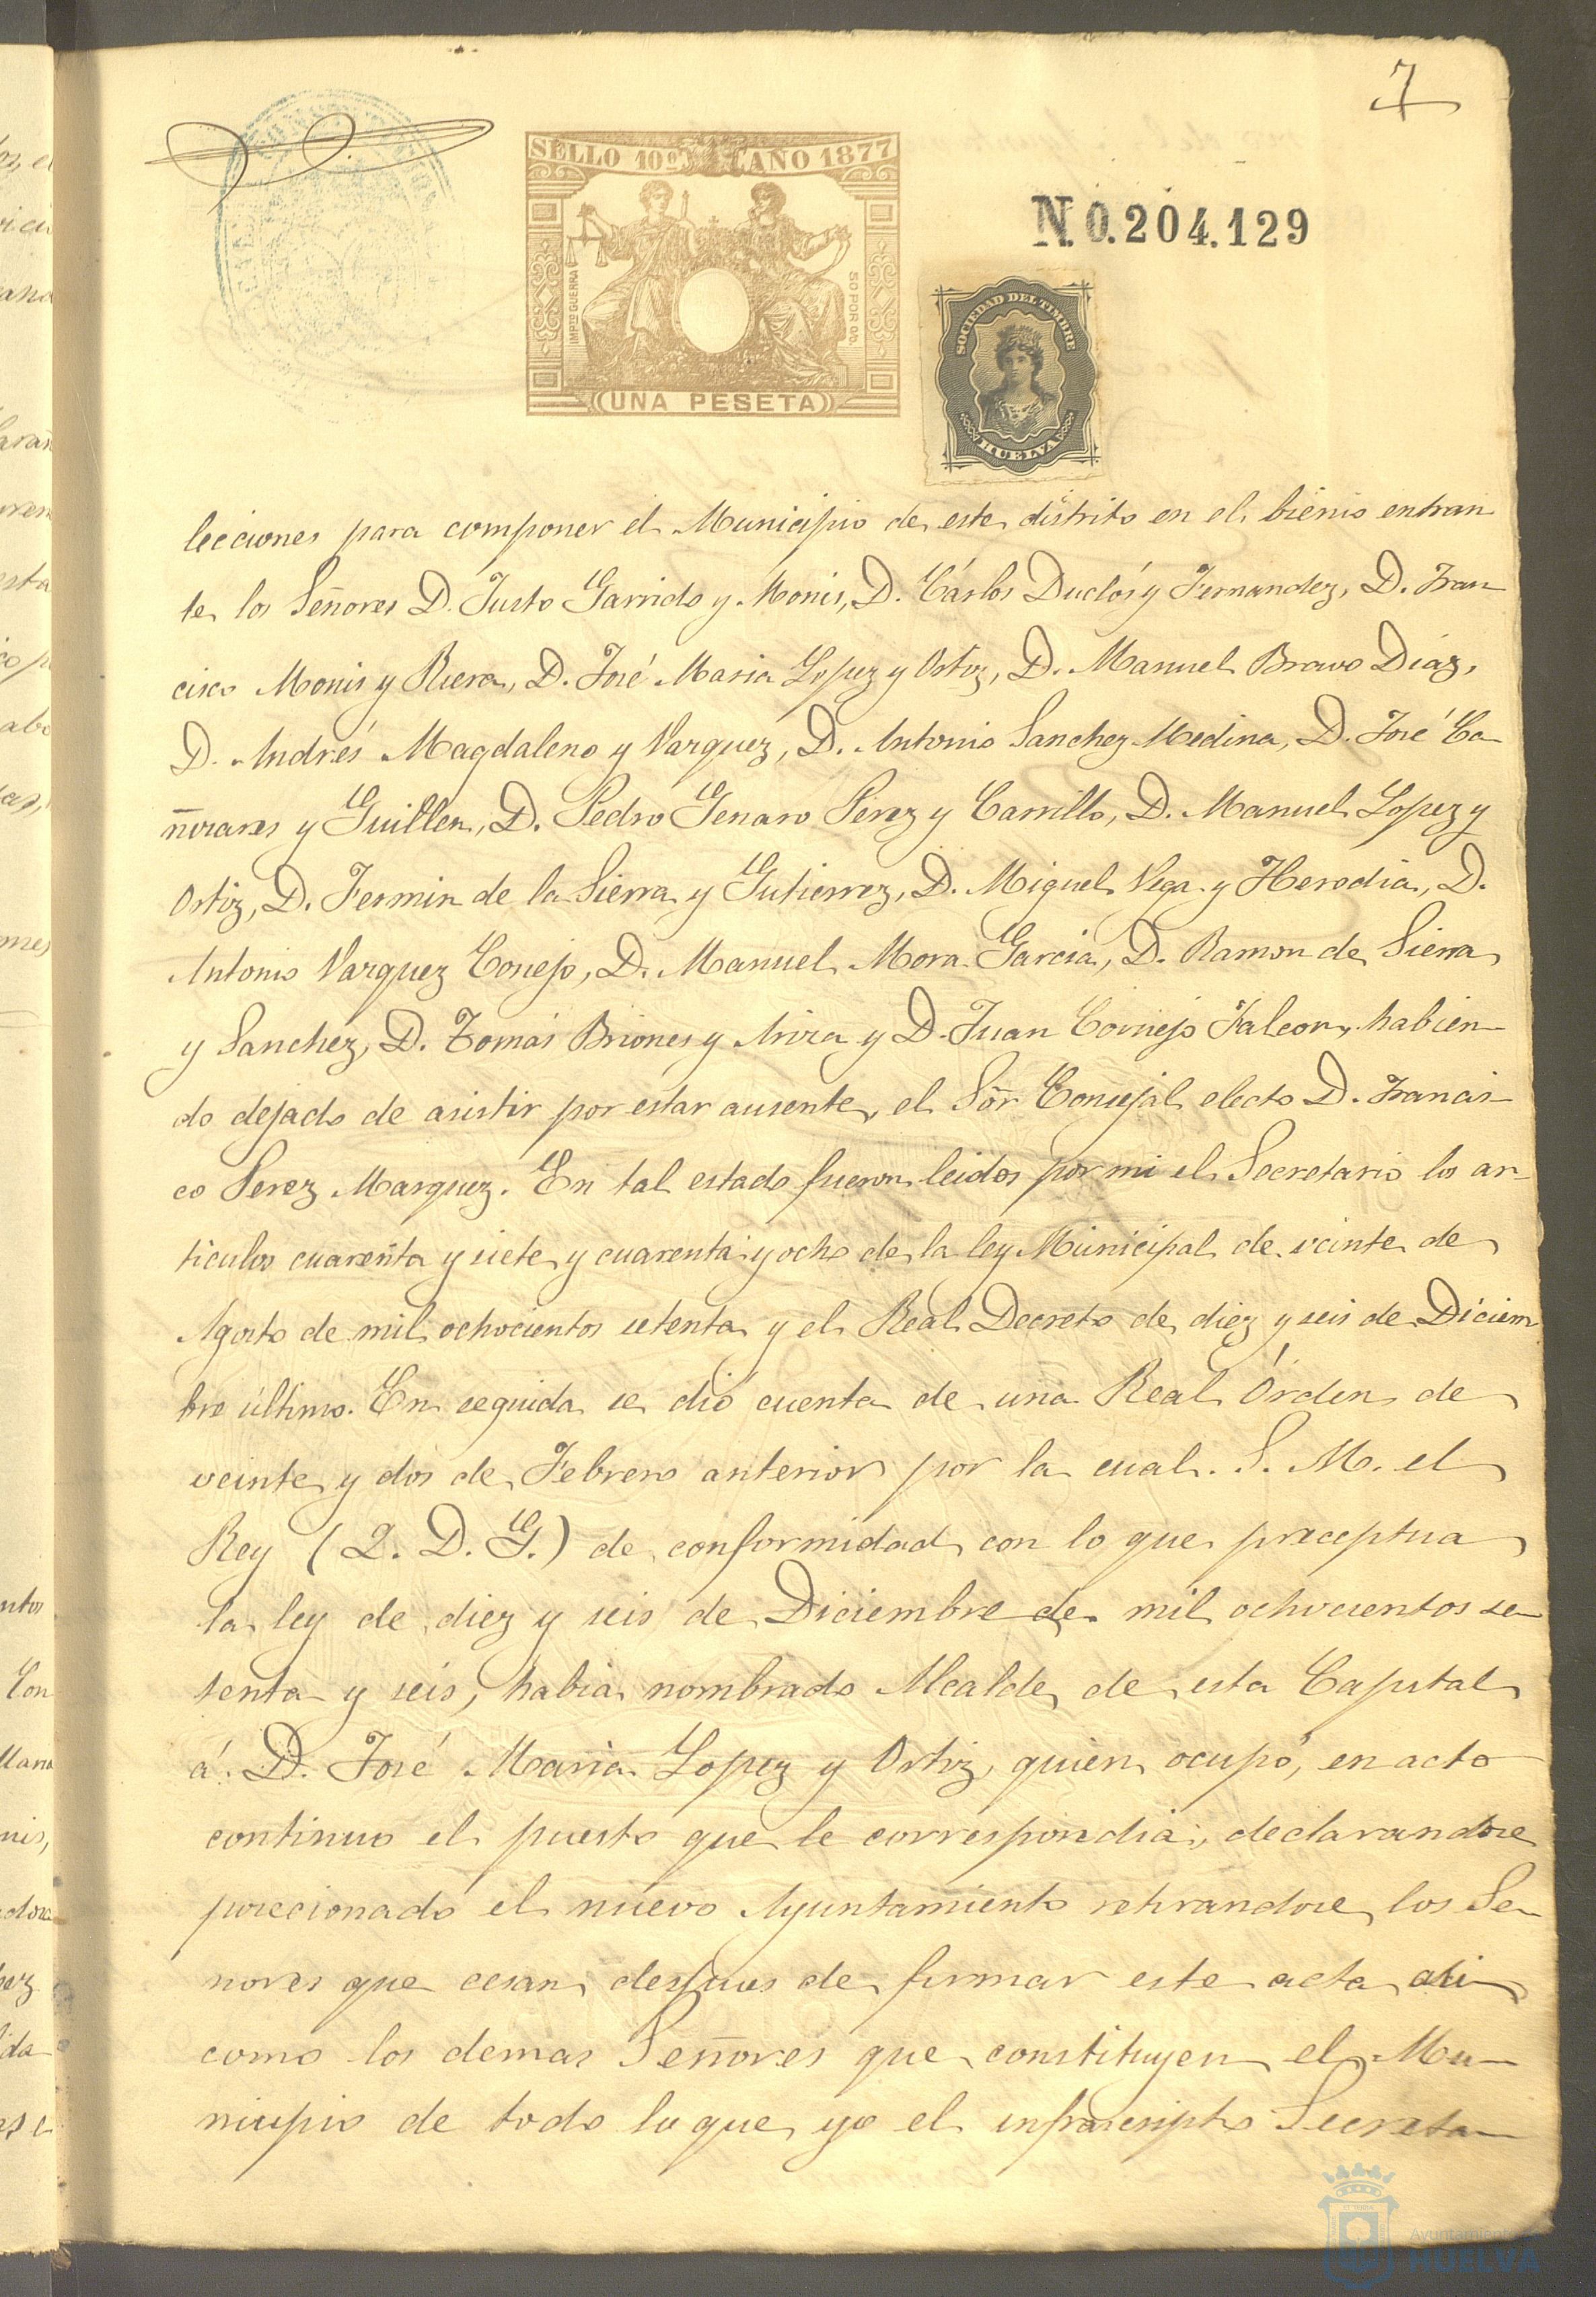 7
SELLO 10º AÑO 1877
IMPTO GUERRA
50 POR 0/0.
UNA PESETA
N. 0.204.129
SOCIEDAD DEL TIMBRE
HUELVA
lecciones para componer el Municipio de este distrito en el bienio entran
te los Señores D. Justo Garrido y Monis, D. Cárlos Duclós y Fernandez, D. Fran
cisco Monis y Riera, D. José Maria Lopez y Ortiz, D. Manuel Bravo Diáz,
D. Andrés Magdaleno y Vazquez, D. Antonio Sanchez Medina, D. José Ca
ñizares y Guillen, D. Pedro Genaro Perez y Carrillo, D. Manuel Lopez y
Ortiz, D. Fermin de la Sierra y Gutierrez, D. Miguel Vega y Heredia, D.
Antonio Vazquez Conejo, D. Manuel Mora Garcia, D. Ramon de Sierra
y Sanchez, D. Tomás Briones y y D. Juan Cornejo Falcon, habien
do dejado de asistir por estar ausente, el Sõr Concejal electo D. Francis
co Perez Marquez. En tal estado fueron leidos por mi el Secretario los ar
ticulos cuarenta y siete y cuarenta y ocho de la ley Municipal de veinte de
Agosto de mil ochocientos setenta y el Real Decreto de diez y seis de Diciem
bre último. En seguida se dió cuenta de una Real Órden de
veinte y dos de Febrero anterior por la cual S. M. el
Rey (Q. D. G.) de conformidad con lo que preceptua
la ley de diez y seis de Diciembre de mil ochocientos se
tenta y seis, habia nombrado Alcalde de esta Capital
á D. José Maria Lopez y Ortiz, quien ocupó, en acto
continuo el puesto que le correspondia, declarandose
posecionado el nuevo Ayuntamiento retirandose los Se
ñores que cesan, despues de firmar este acta asi
como los demas Señores que constituyen el Mu
nicipio de todo lo que yo el infrascripto Secreta
Ayuntamiento
HUELVA